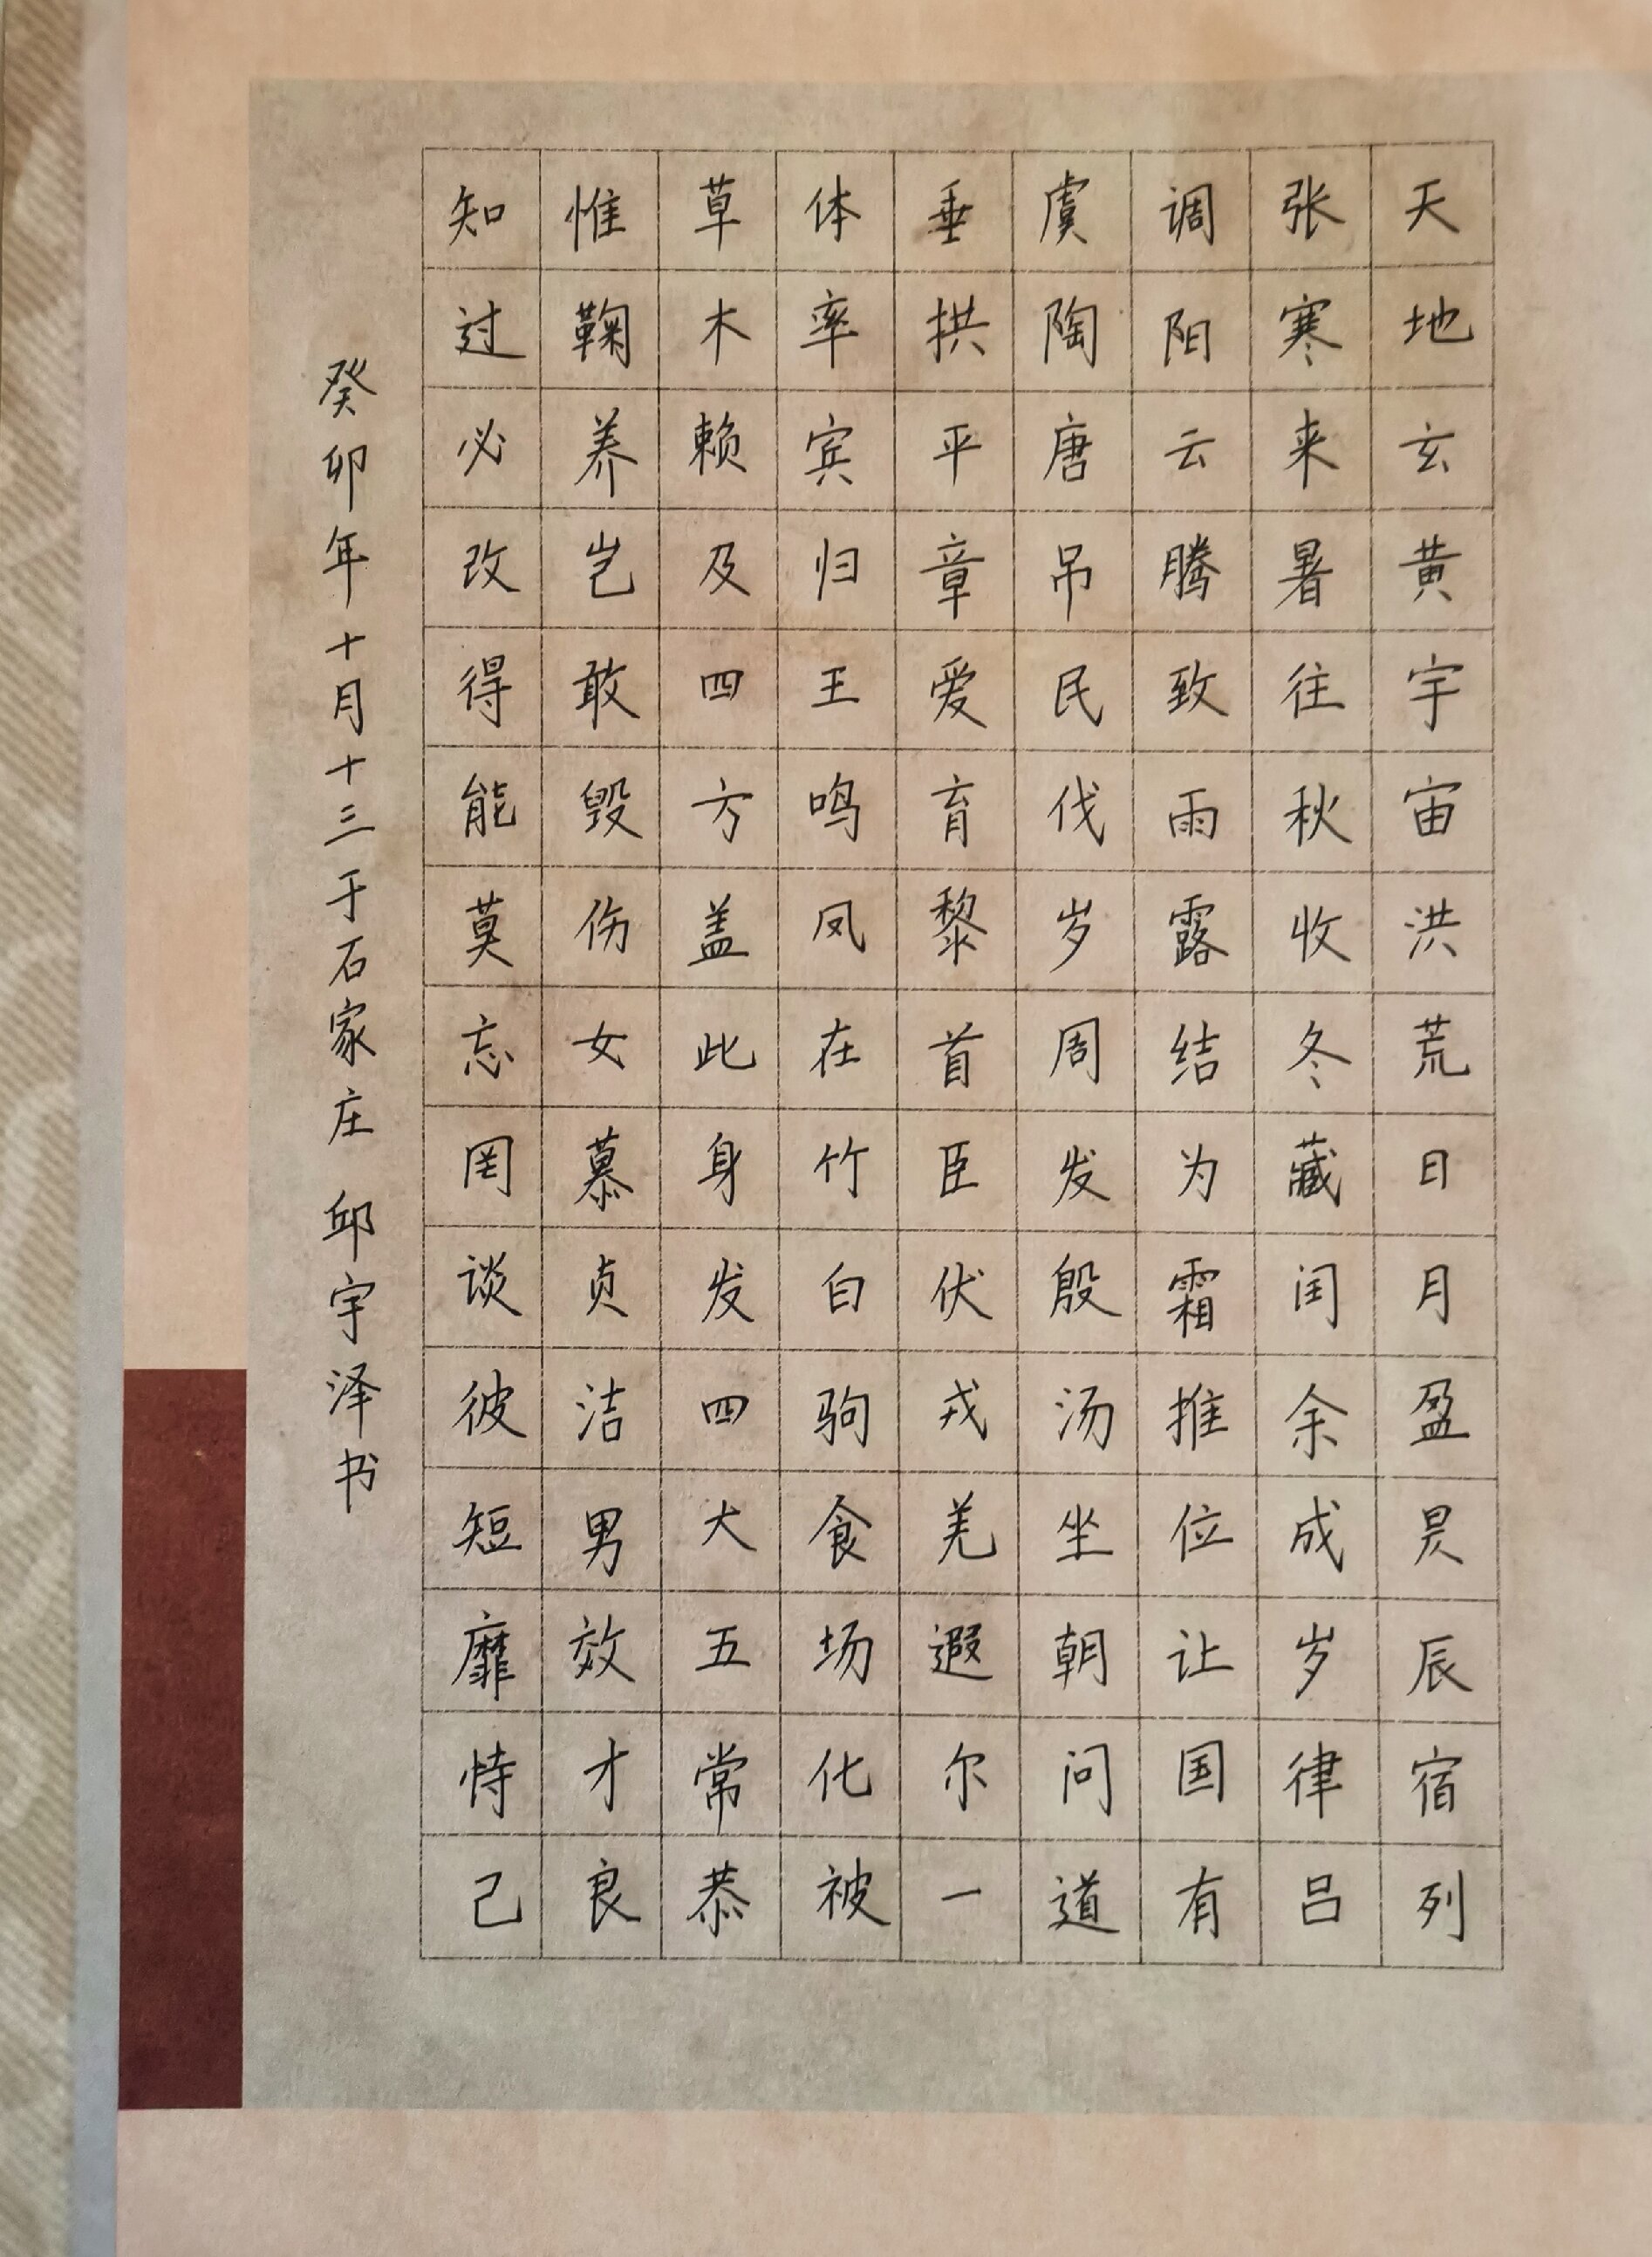 天地玄黄宇宙洪荒日月盈昃辰宿列
张寒来暑往秋收冬藏闰余成岁律吕
调阳云腾致雨露结为霜推位让国有
虞陶唐吊民伐岁周发殷汤坐朝问道
垂拱平章爱育黎首臣伏戎羌遐尔一
体率宾归王鸣凤在竹白驹食场化被
草木赖及四方盖此身发四大五常恭
惟鞠养岂敢毁伤女慕贞洁男效才良
知过必改得能莫忘罔谈彼短靡恃己
癸卯年十月十三于石家庄 邱宇泽书